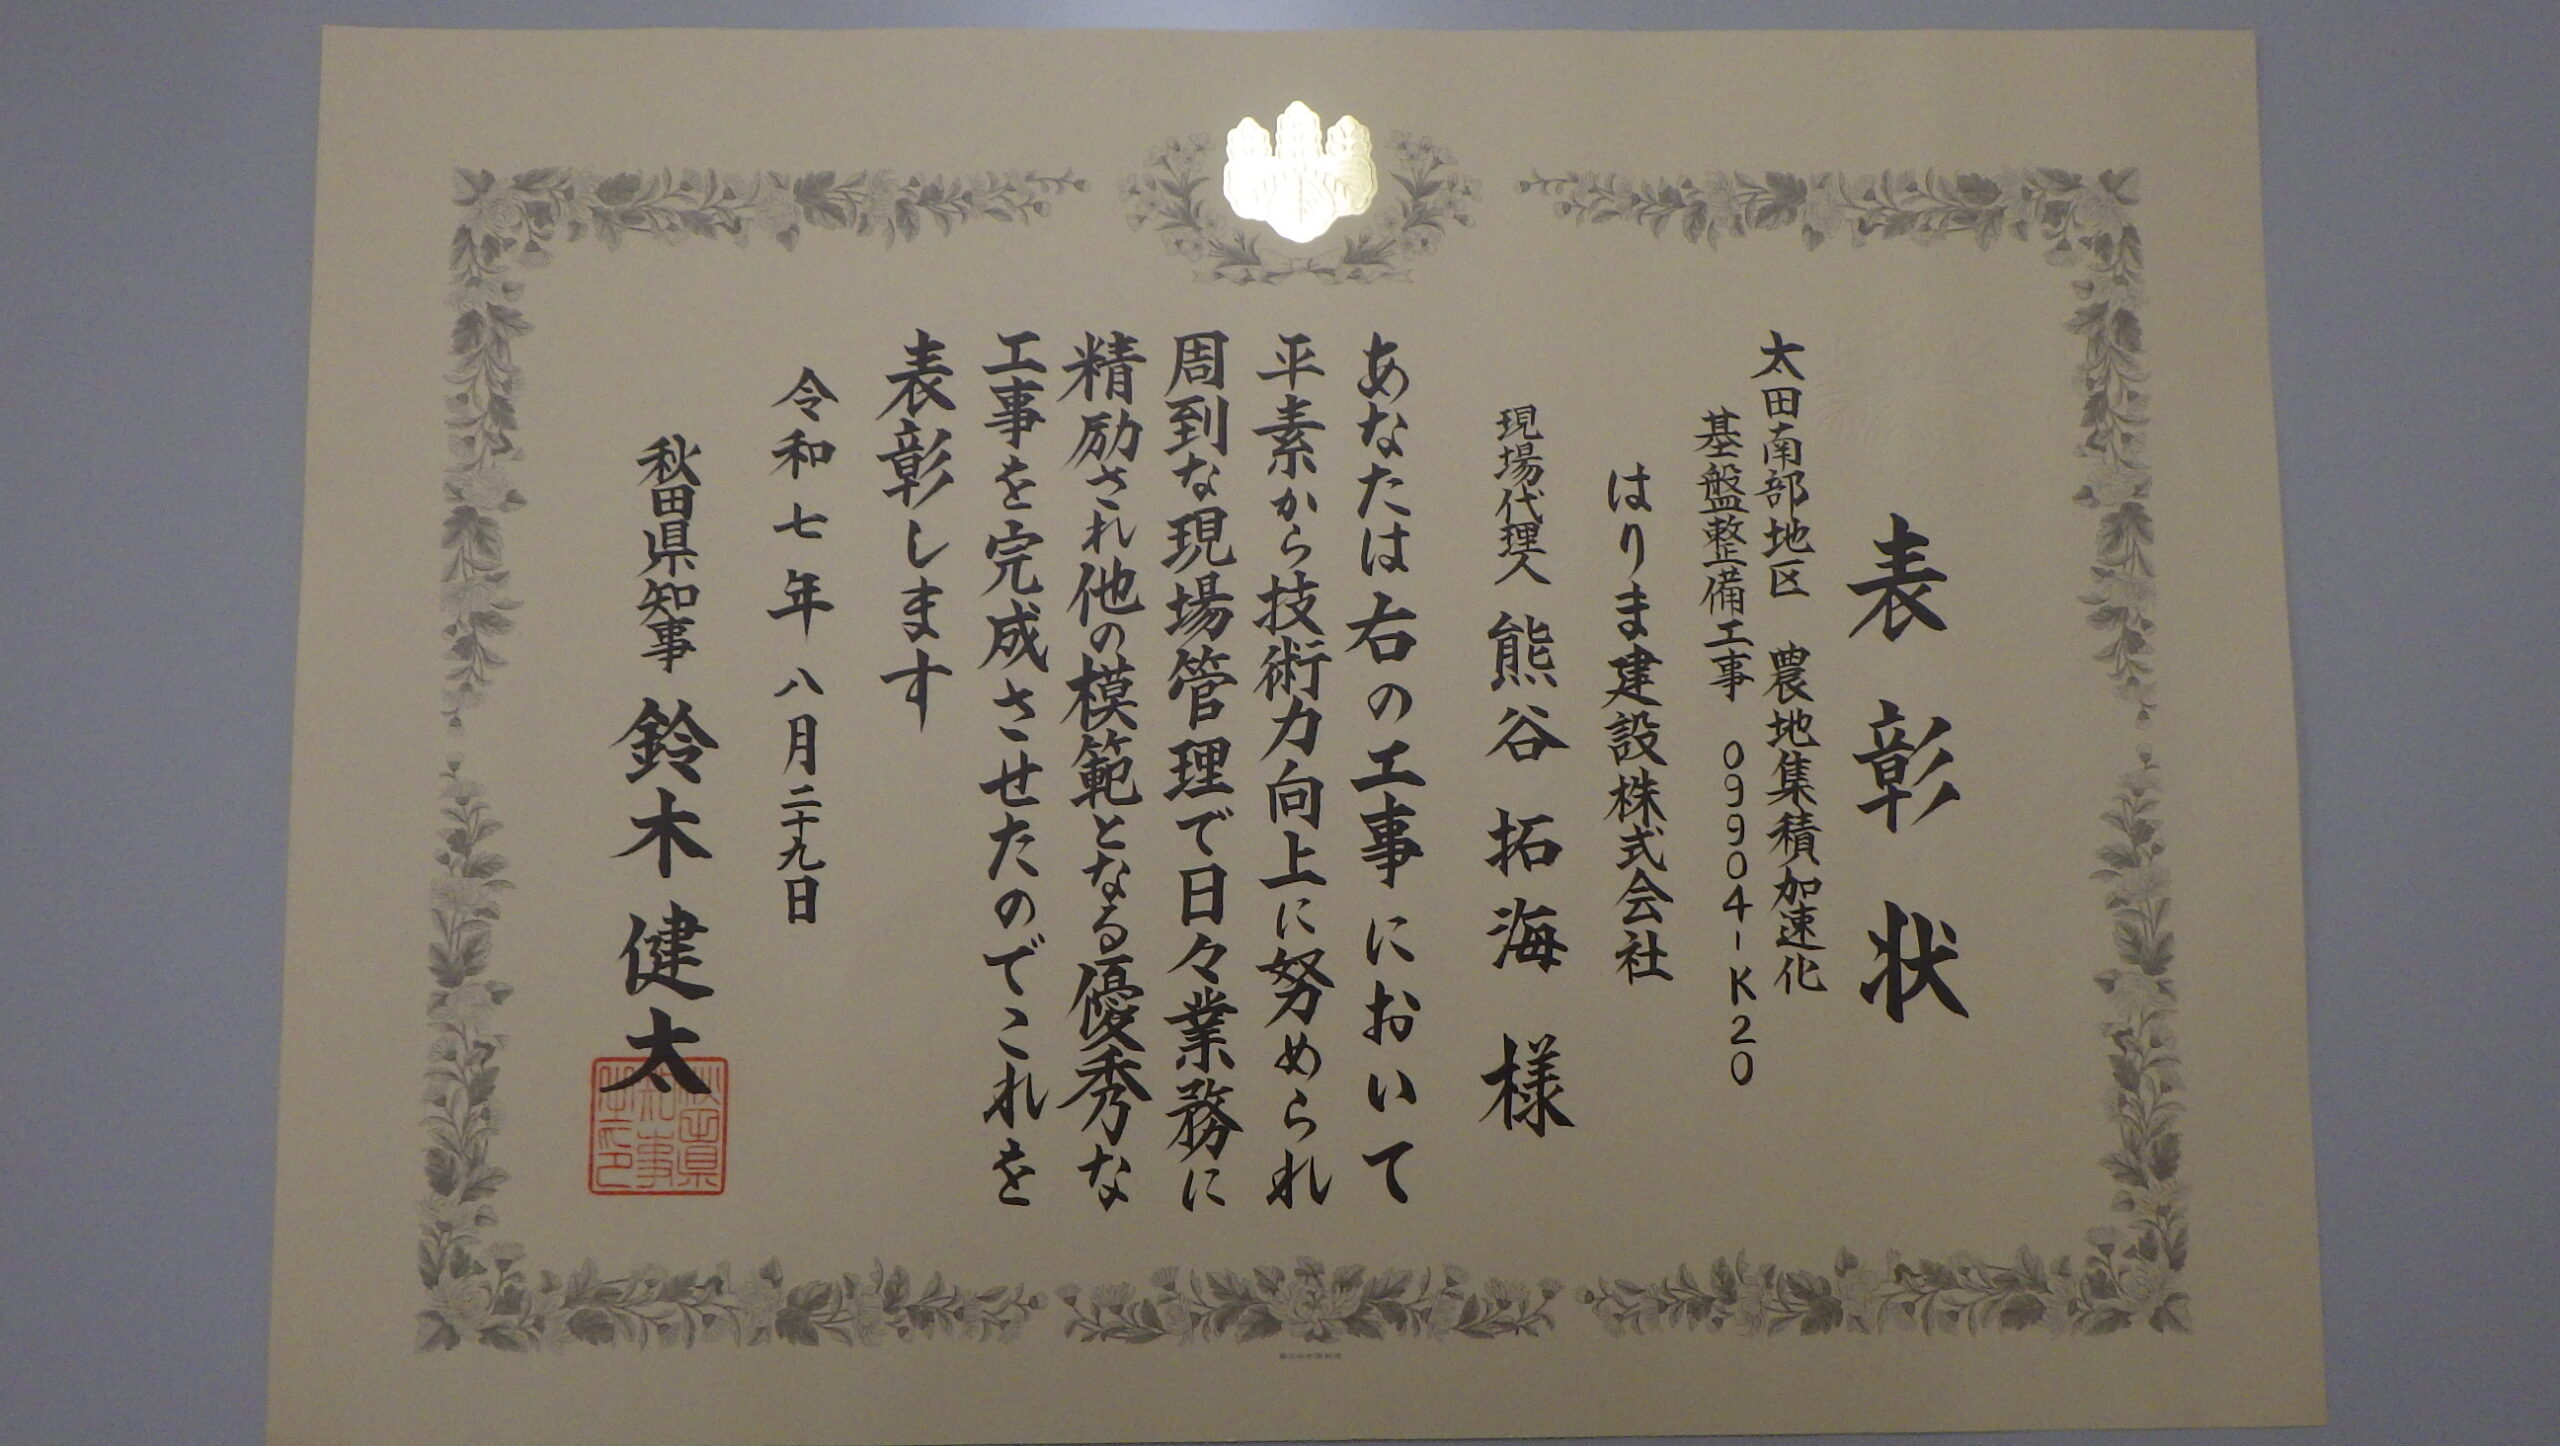 表彰状
太田南部地区　農地集積加速化
基盤整備工事　09904-K20
はりま建設株式会社
現場代理人　熊谷拓海様
あなたは右の工事において
平素から技術力向上に努められ
周到な現場管理で日々業務に
精励され他の模範となる優秀な
工事を完成させたのでこれを
表彰します
令和七年八月二十九日
秋田県知事　鈴木健太